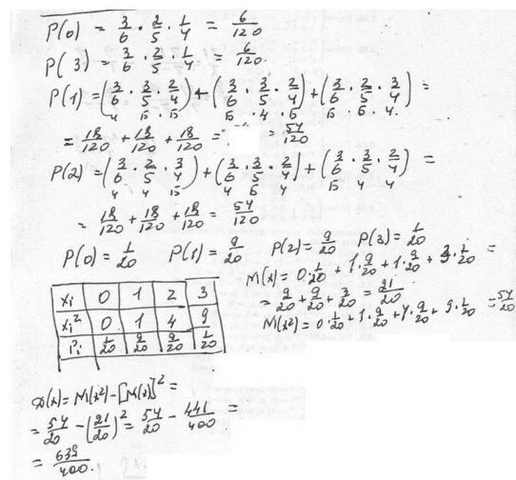 P(0) = 3/6 · 2/5 · 1/4 = 6/120
P(3) = 3/6 · 2/5 · 1/4 = 6/120.
P(1) = (3/6 · 3/5 · 2/4) + (3/6 · 3/5 · 2/4) + (3/6 · 2/5 · 3/4) =
= 18/120 + 18/120 + 18/120 = = 54/120
P(2) = (3/6 · 2/5 · 3/4) + (3/6 · 3/5 · 2/4) + (3/6 · 3/5 · 2/4) =
= 18/120 + 18/120 + 18/120 = 54/120
P(0) = 1/20 P(1) = 9/20 P(2) = 9/20 P(3) = 1/20
M(x) = 0 · 1/20 + 1 · 9/20 + 1 · 9/20 + 3 · 1/20 =
= 9/20 + 9/20 + 3/20 = 21/20
M(x²) = 0 · 1/20 + 1 · 9/20 + 4 · 9/20 + 9 · 1/20 = 54/20
xi 0 1 2 3
xi² 0 1 4 9
Pi 1/20 9/20 9/20 1/20
D(x) = M(x²) - [M(x)]² =
= 54/20 - (21/20)² = 54/20 - 441/400 =
= 639/400.